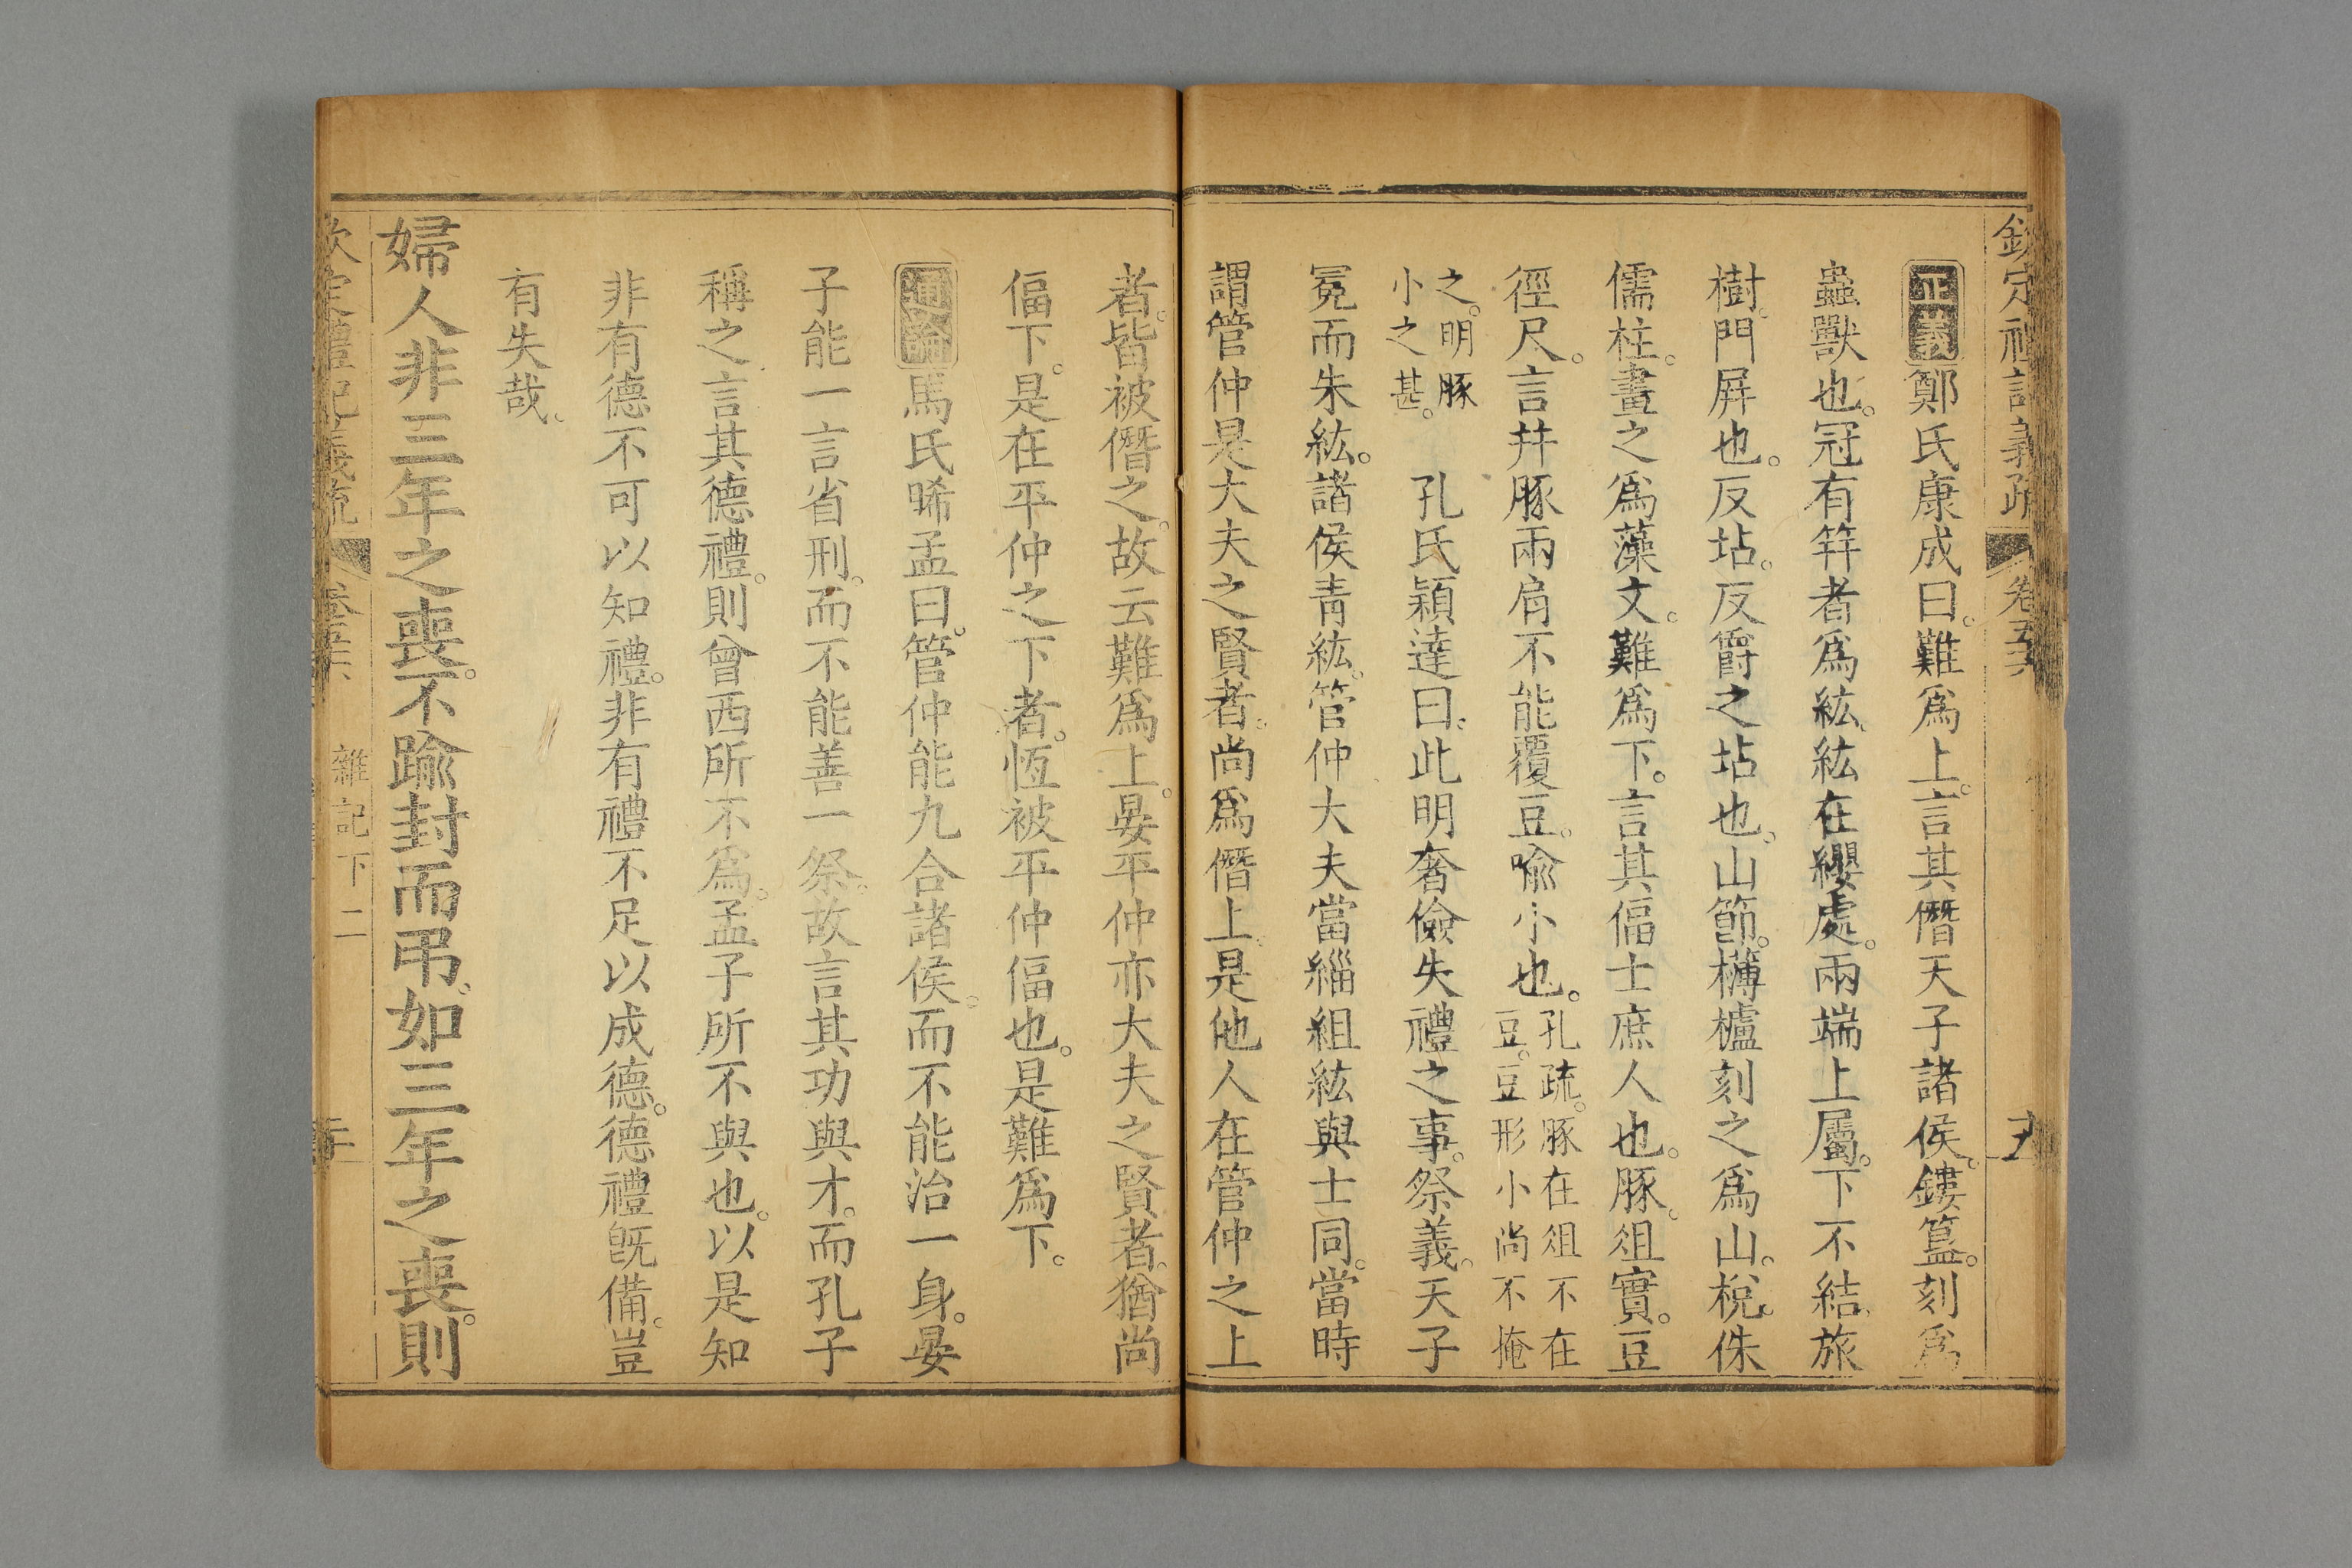 欽定禮記義疏 卷五十六
正義鄭氏康成曰。難爲上。言其僭天子諸侯。鏤簋。刻爲
蟲獸也。冠有笄者爲紘。紘在纓處。兩端上屬。下不結。旅
樹。門屛也。反坫。反爵之坫也。山節。欂櫨刻之爲山。梲。侏
儒柱。畫之爲藻文。難爲下。言其偪士庶人也。豚。俎實。豆
徑尺。言幷豚兩肩不能覆豆。喩小也。孔疏。豚在俎不在
豆。豆形小尚不掩
之。明豚
小之甚。
孔氏穎達曰。此明奢儉失禮之事。祭義。天子
冕而朱紘。諸侯靑紘。管仲大夫當緇組紘與士同。當時
謂管仲是大夫之賢者。尚爲僭上。是他人在管仲之上
者。皆被僭之。故云難爲上。晏平仲亦大夫之賢者。猶尚
偪下。是在平仲之下者。恆被平仲偪也。是難爲下。
通論馬氏晞孟曰。管仲能九合諸侯。而不能治一身。晏
子能一言省刑。而不能善一祭。故言其功與才。而孔子
稱之言其德禮。則曾西所不爲。孟子所不與也。以是知
非有德不可以知禮。非有禮不足以成德。德禮旣備。豈
有失哉。
婦人非三年之喪。不踰封而弔。如三年之喪。則
欽定禮記義疏 雜記下二